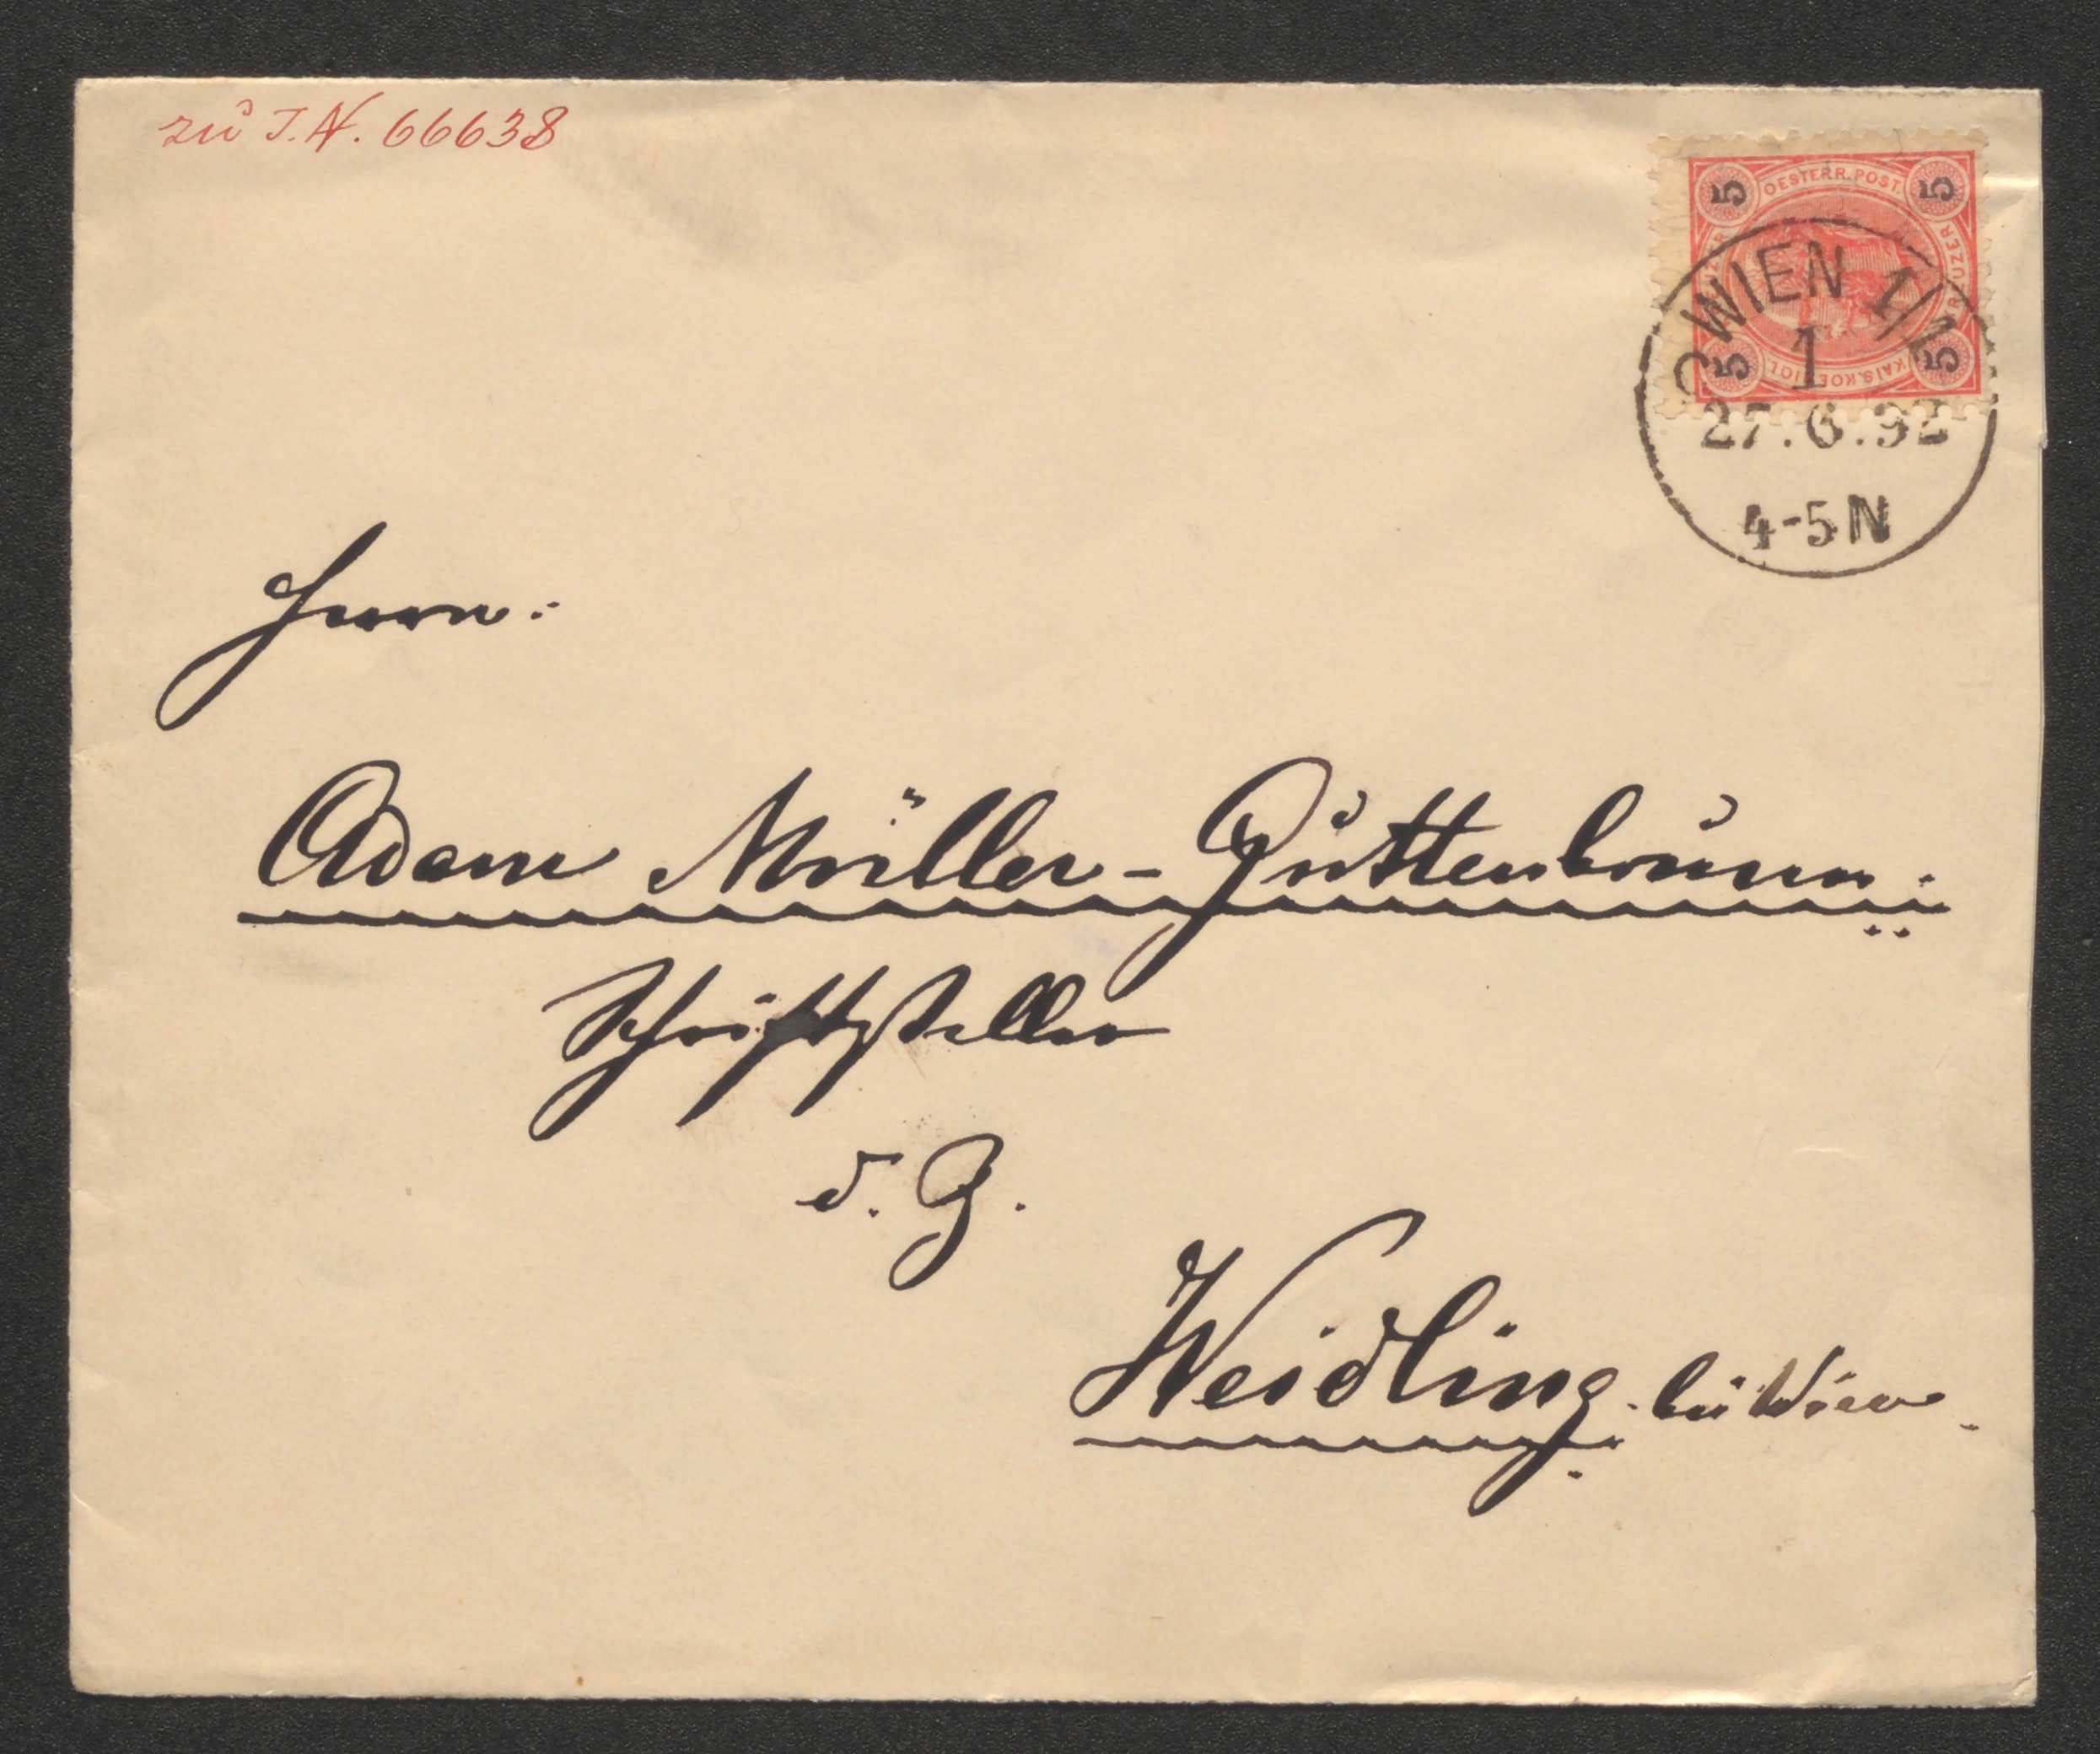 zu J.N. 66638
5 OESTERR. POST. 5
KREUZER
5 KAIS. KOENIGL. 5
WIEN 1/1
1
27.6.92
4-5N
Herrn:
Adam Müller-Guttenbrunn.
Schriftsteller
d. Z.
Weidling. bei Wien.